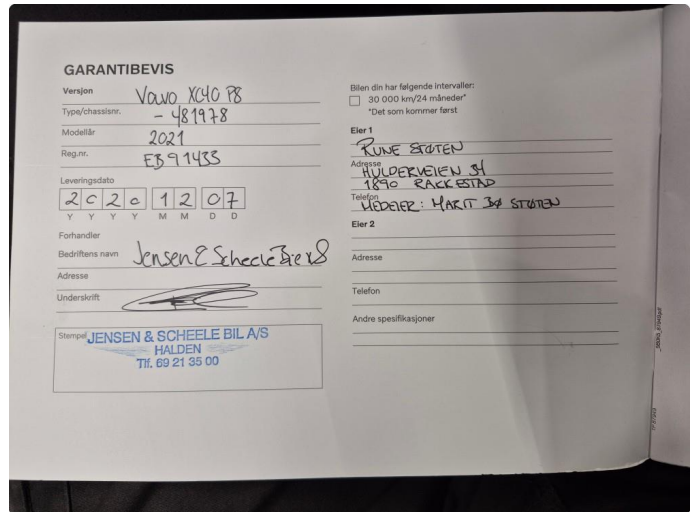 GARANTIBEVIS
Versjon Volvo XC40 P8
Type/chassisnr. - 481978
Modellår 2021
Reg.nr. EB91433
Leveringsdato
2020 12 07
Y Y Y Y M M D D
Forhandler
Bedriftens navn Jensen & Scheele Bil
Adresse
Underskrift
Stempel JENSEN & SCHEELE BIL A/S
HALDEN
Tlf. 69 21 35 00
Bilen din har følgende intervaller:
30 000 km/24 måneder*
*Det som kommer først
Eier 1
RUNE STØTEN
Adresse HULDERVEIEN 34
1890 RAKKESTAD
Telefon MEDEIER: MARIT BØ STØTEN
Eier 2
Adresse
Telefon
Andre spesifikasjoner